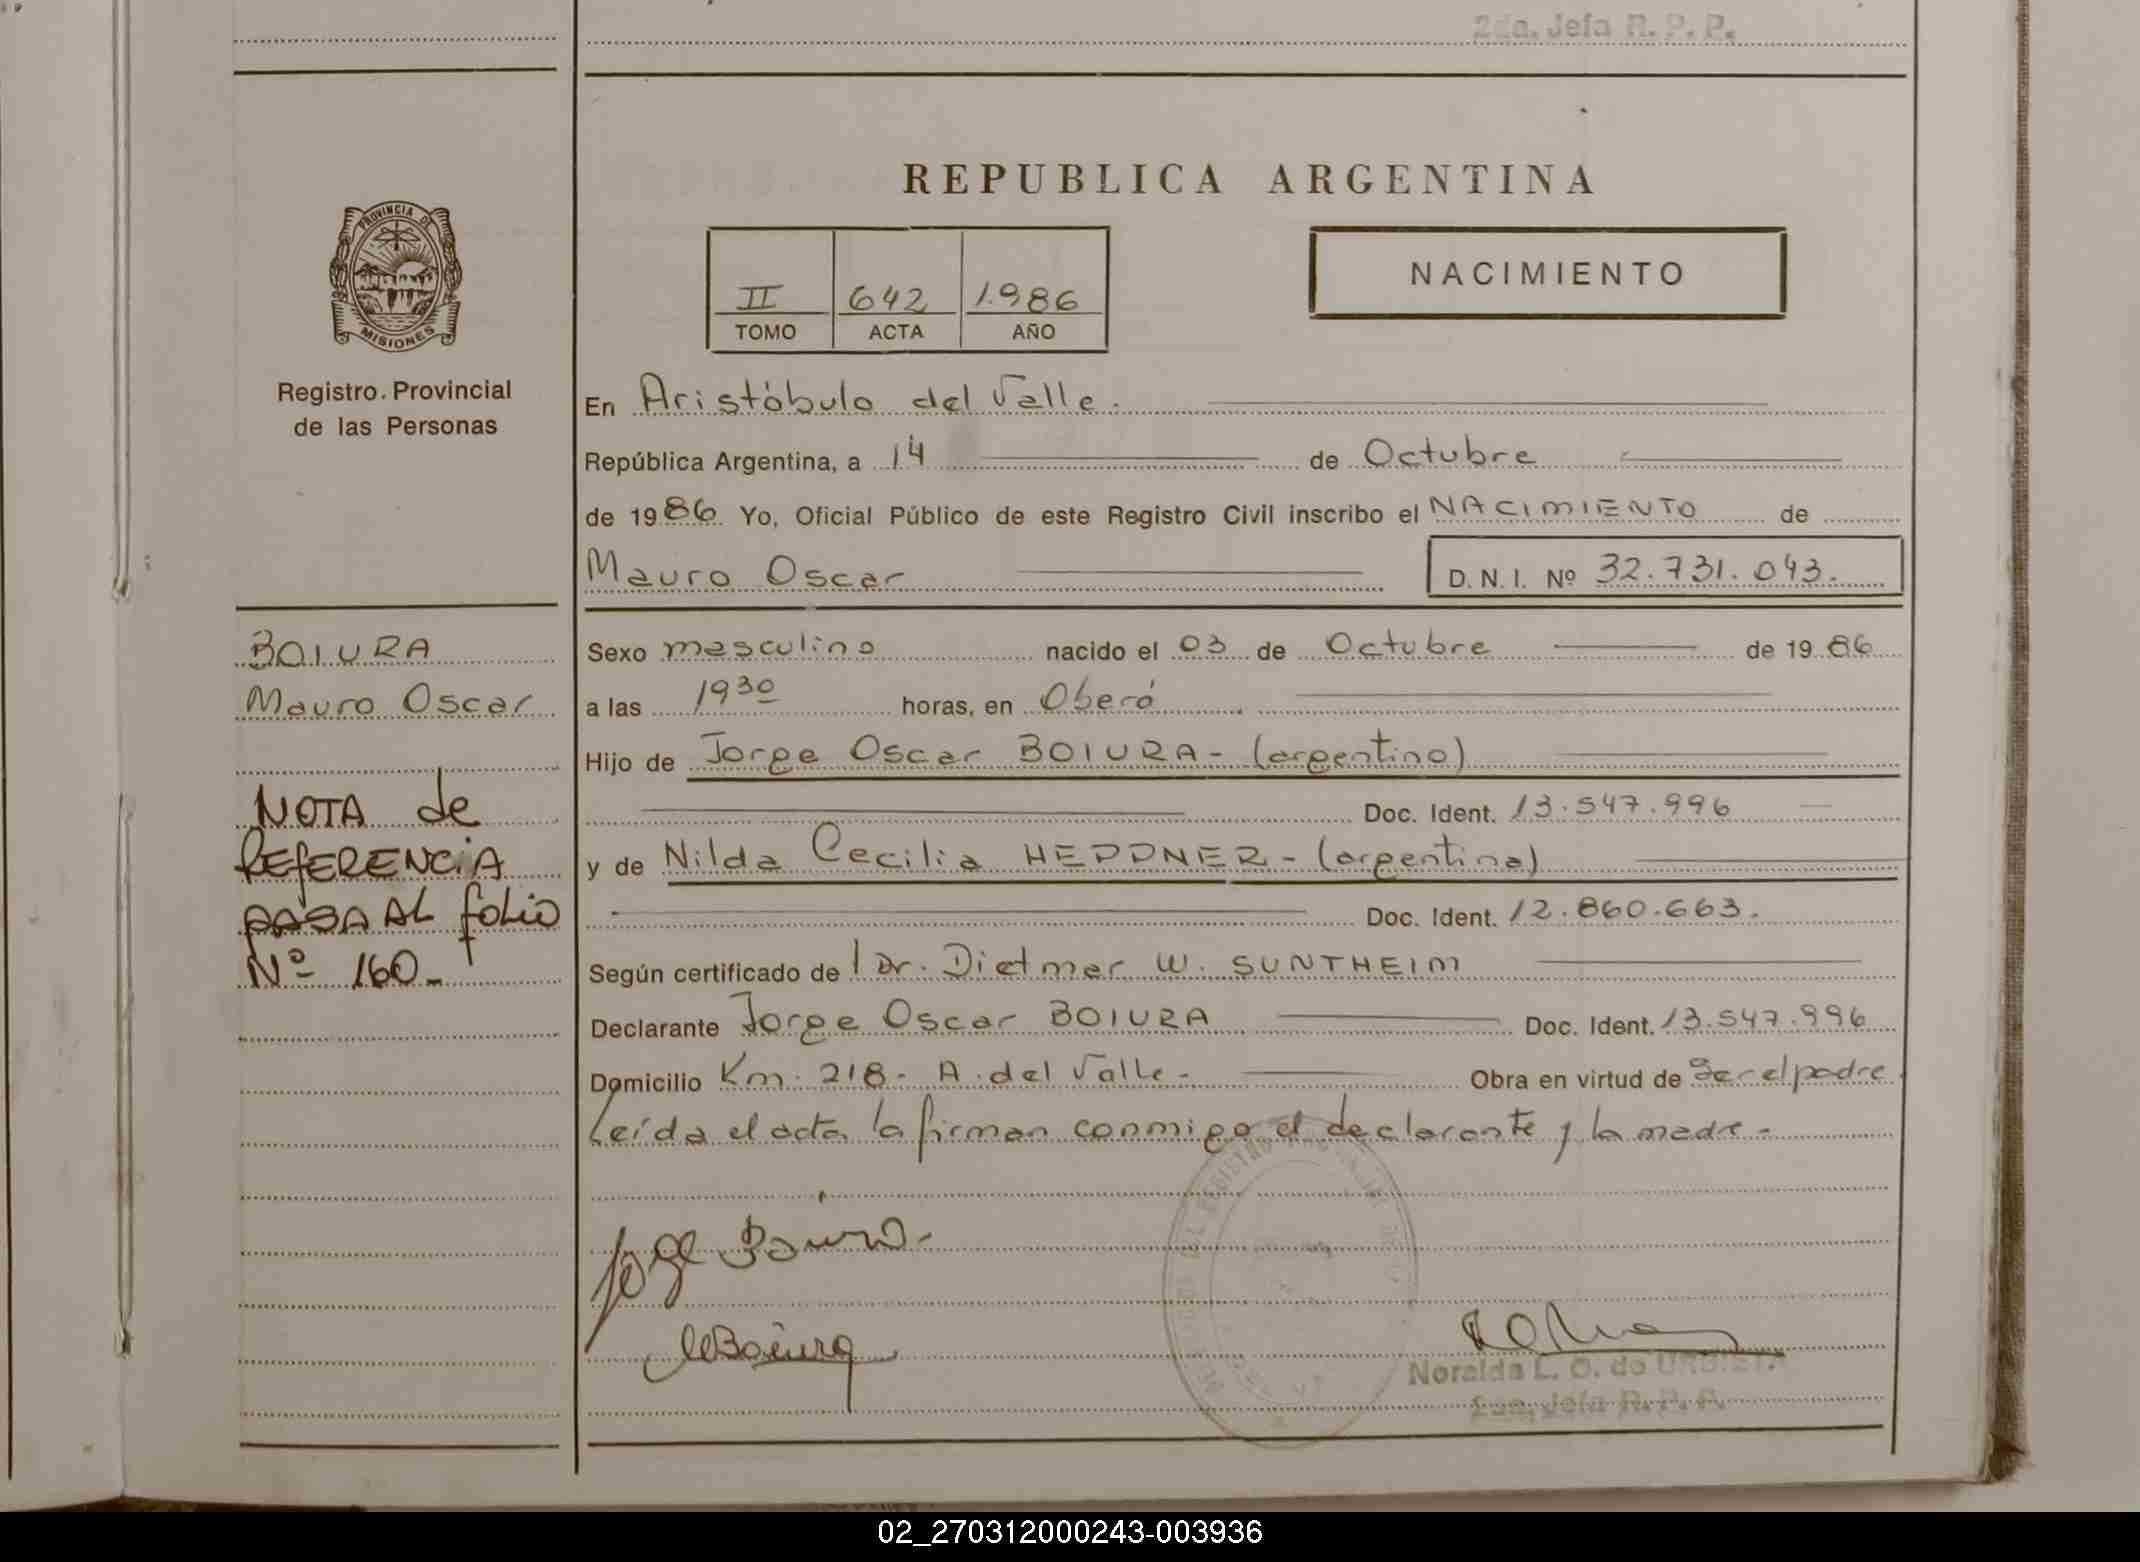 2da. Jefa R. P. P.
PROVINCIA DE
MISIONES
Registro Provincial
de las Personas
REPUBLICA ARGENTINA
II 642 1.986
TOMO ACTA AÑO
NACIMIENTO
En Aristóbulo del Valle.
República Argentina, a 14 de Octubre
de 1986 Yo, Oficial Público de este Registro Civil inscribo el NACIMIENTO de
Mauro Oscar D. N. I. Nº 32.731.043.
BOIURA
Mauro Oscar
NOTA de
REFERENCIA
PASA AL folio
Nº 160.-
Sexo masculino nacido el 03 de Octubre de 1986
a las 19 30 horas, en Oberá
Hijo de Jorge Oscar BOIURA - (argentino)
Doc. Ident. 13.547.996
y de Nilda Cecilia HEPPNER - (argentina)
Doc. Ident. 12.860.663.
Según certificado de l Dr. Dietmar W. SUNTHEIM
Declarante Jorge Oscar BOIURA Doc. Ident. 13.547.996
Domicilio Km. 218 - A. del Valle - Obra en virtud de Ser el padre.
Leída el acta la firman conmigo el declarante y la madre -
Jorge Boiura -
Noralda L. O. de URBIETA
2da. Jefa R. P. P.
02_270312000243-003936